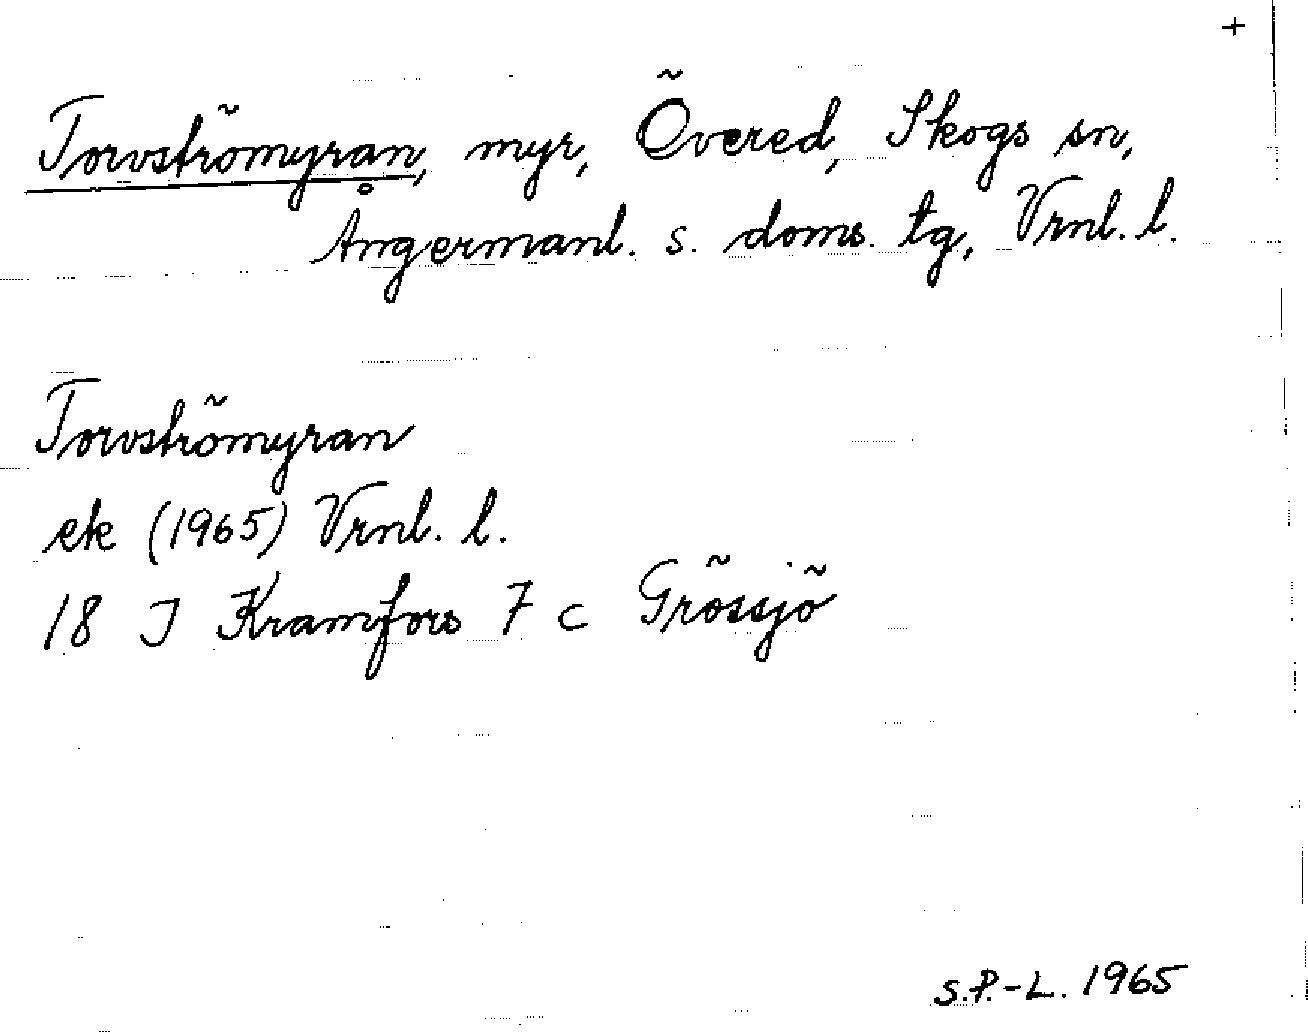 +
Torvströmyran, myr, Övered, Skogs sn,
Ångermanl. s. doms. tg, Vrnl. l.
Torvströmyran
ek (1965) Vrnl. l.
18 J Kramfors 7 c Grössjö
S.P.-L. 1965